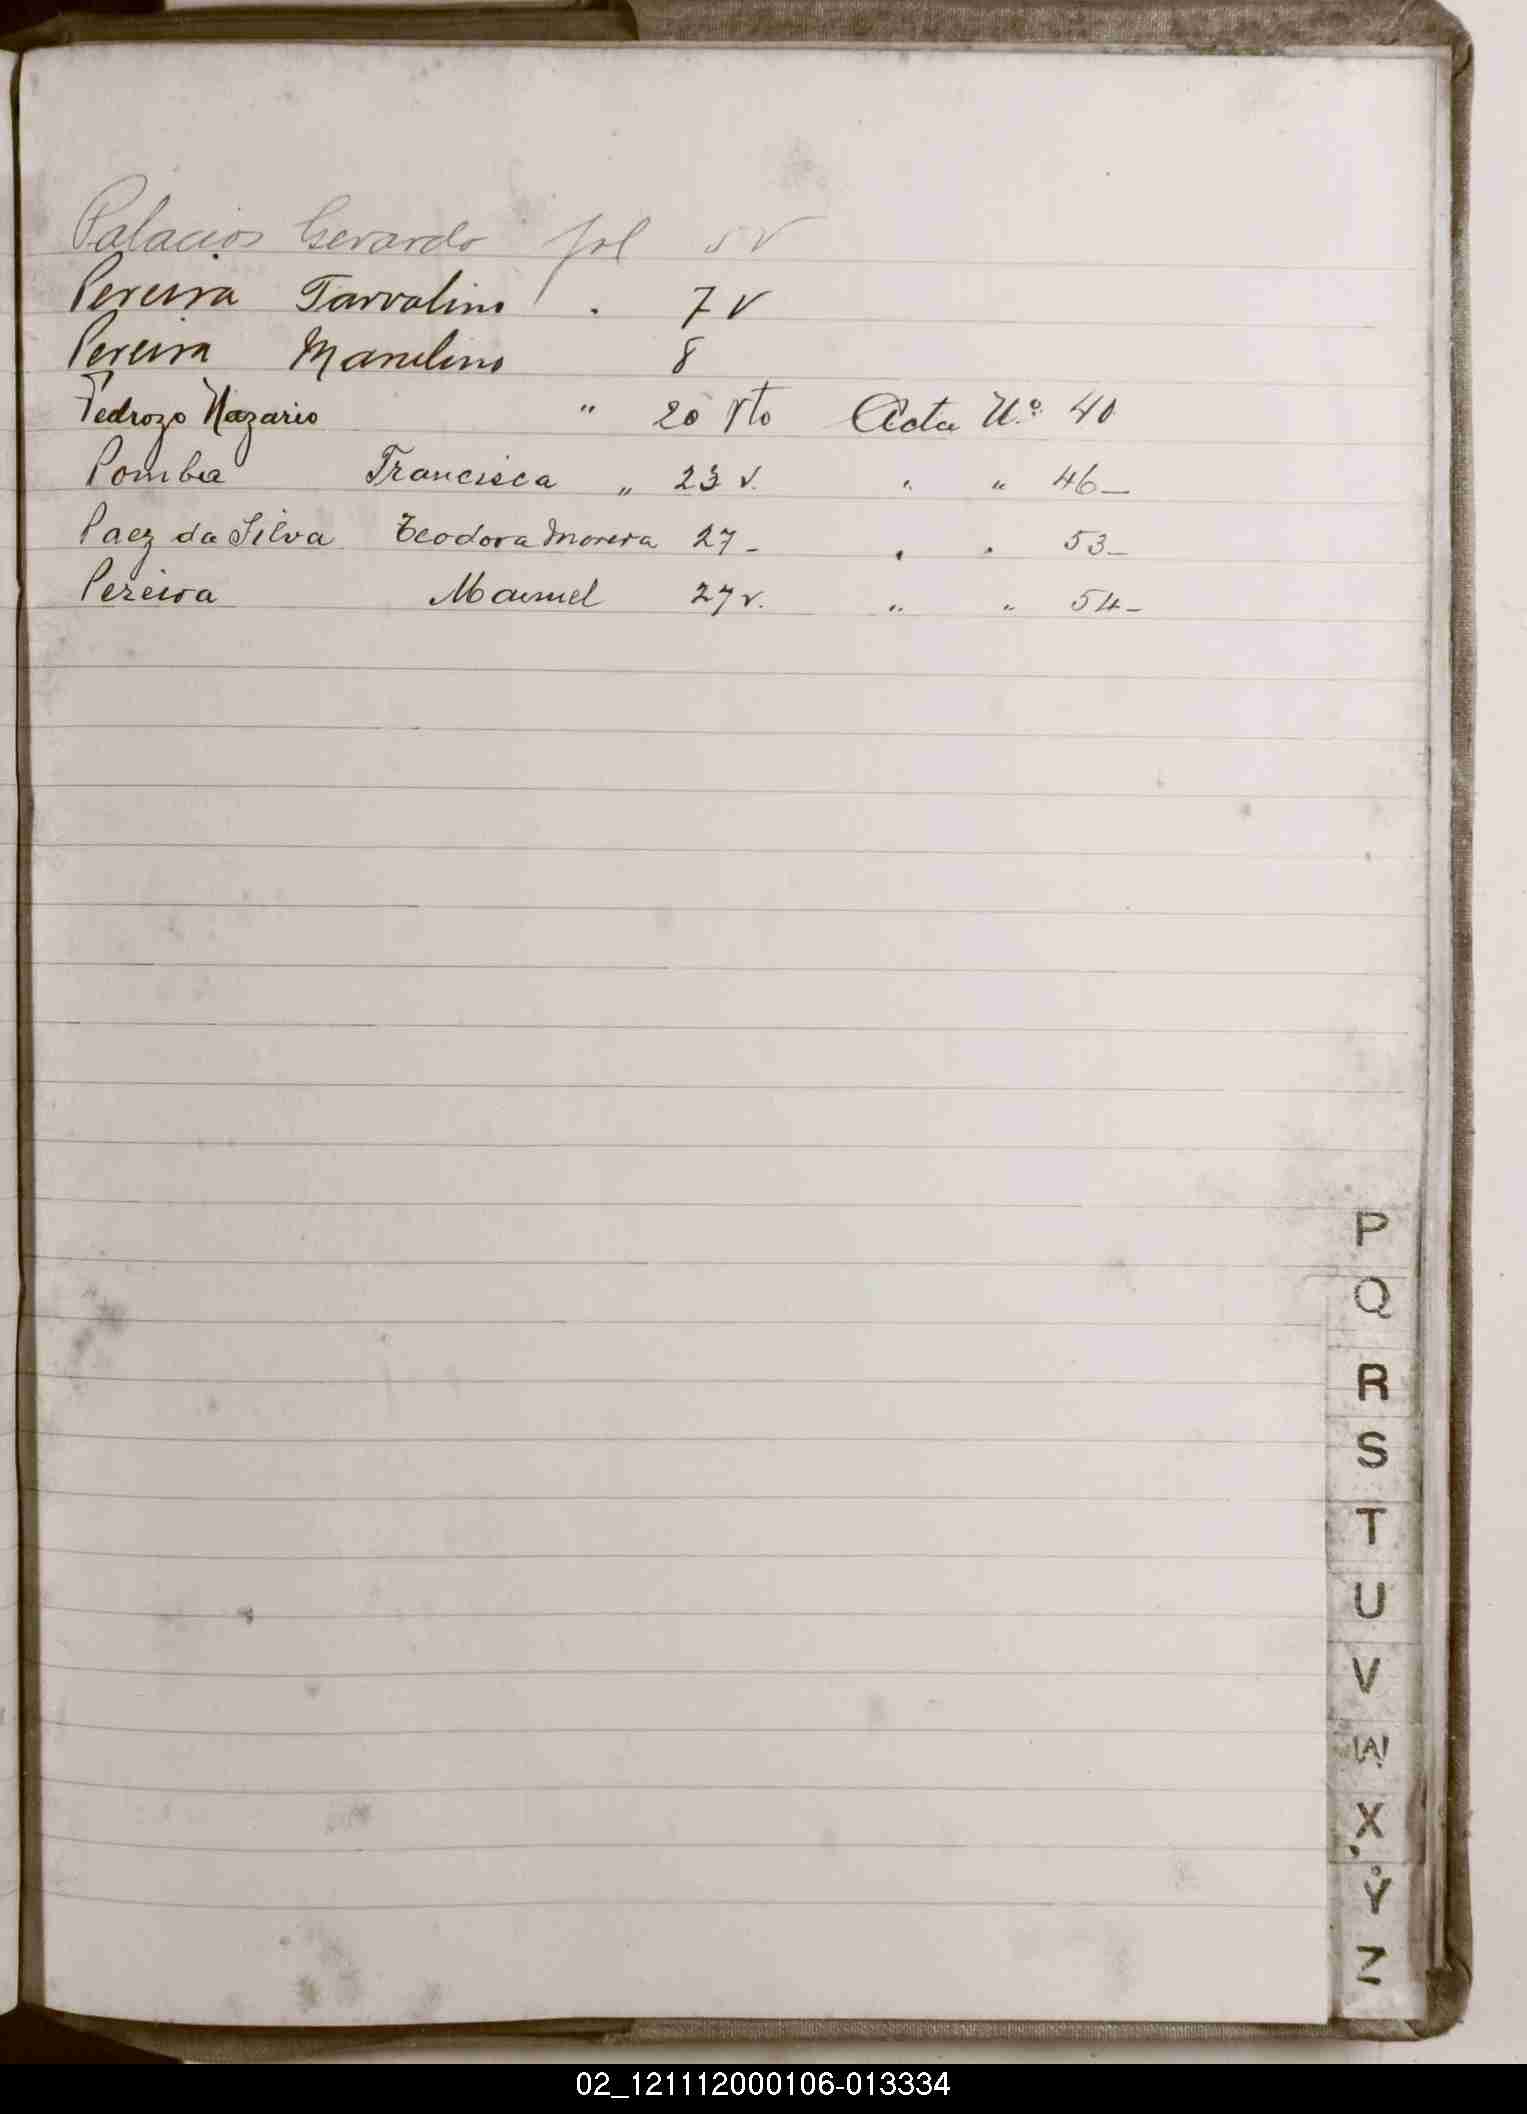 Palacios Gerardo fol 5 v
Pereira Tarvalino . 7 v
Pereira Marcelino 8
Pedrozo Nazario " 20 Vto Acta Nº 40
Pomba Francisca " 23 v. " " 46_
Paez da Silva Teodora Morera 27_ " " 53_
Pereira Manuel 27 v. " " 54_
P
Q
R
S
T
U
V
W
X
Y
Z
02_121112000106-013334